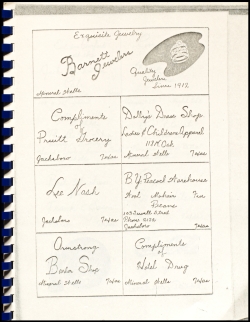 Exquisite Jewelry
Barnett
Jewelers
Quality
Jewelers
Since 1917
Mineral Wells
Compliments
of
Pruitt Grocery
Jacksboro Texas
Dolly's Dress Shop
Ladies & Children Apparel
113 N. Oak
Mineral Wells Texas
Lee Nash
Jacksboro Texas
Warehouse
Wool Mohair
Pecans
Street
Phone
Jacksboro Texas
Armstrong
Shop
Mineral Wells Texas
Compliments
of
Hotel Drug
Mineral Wells Texas